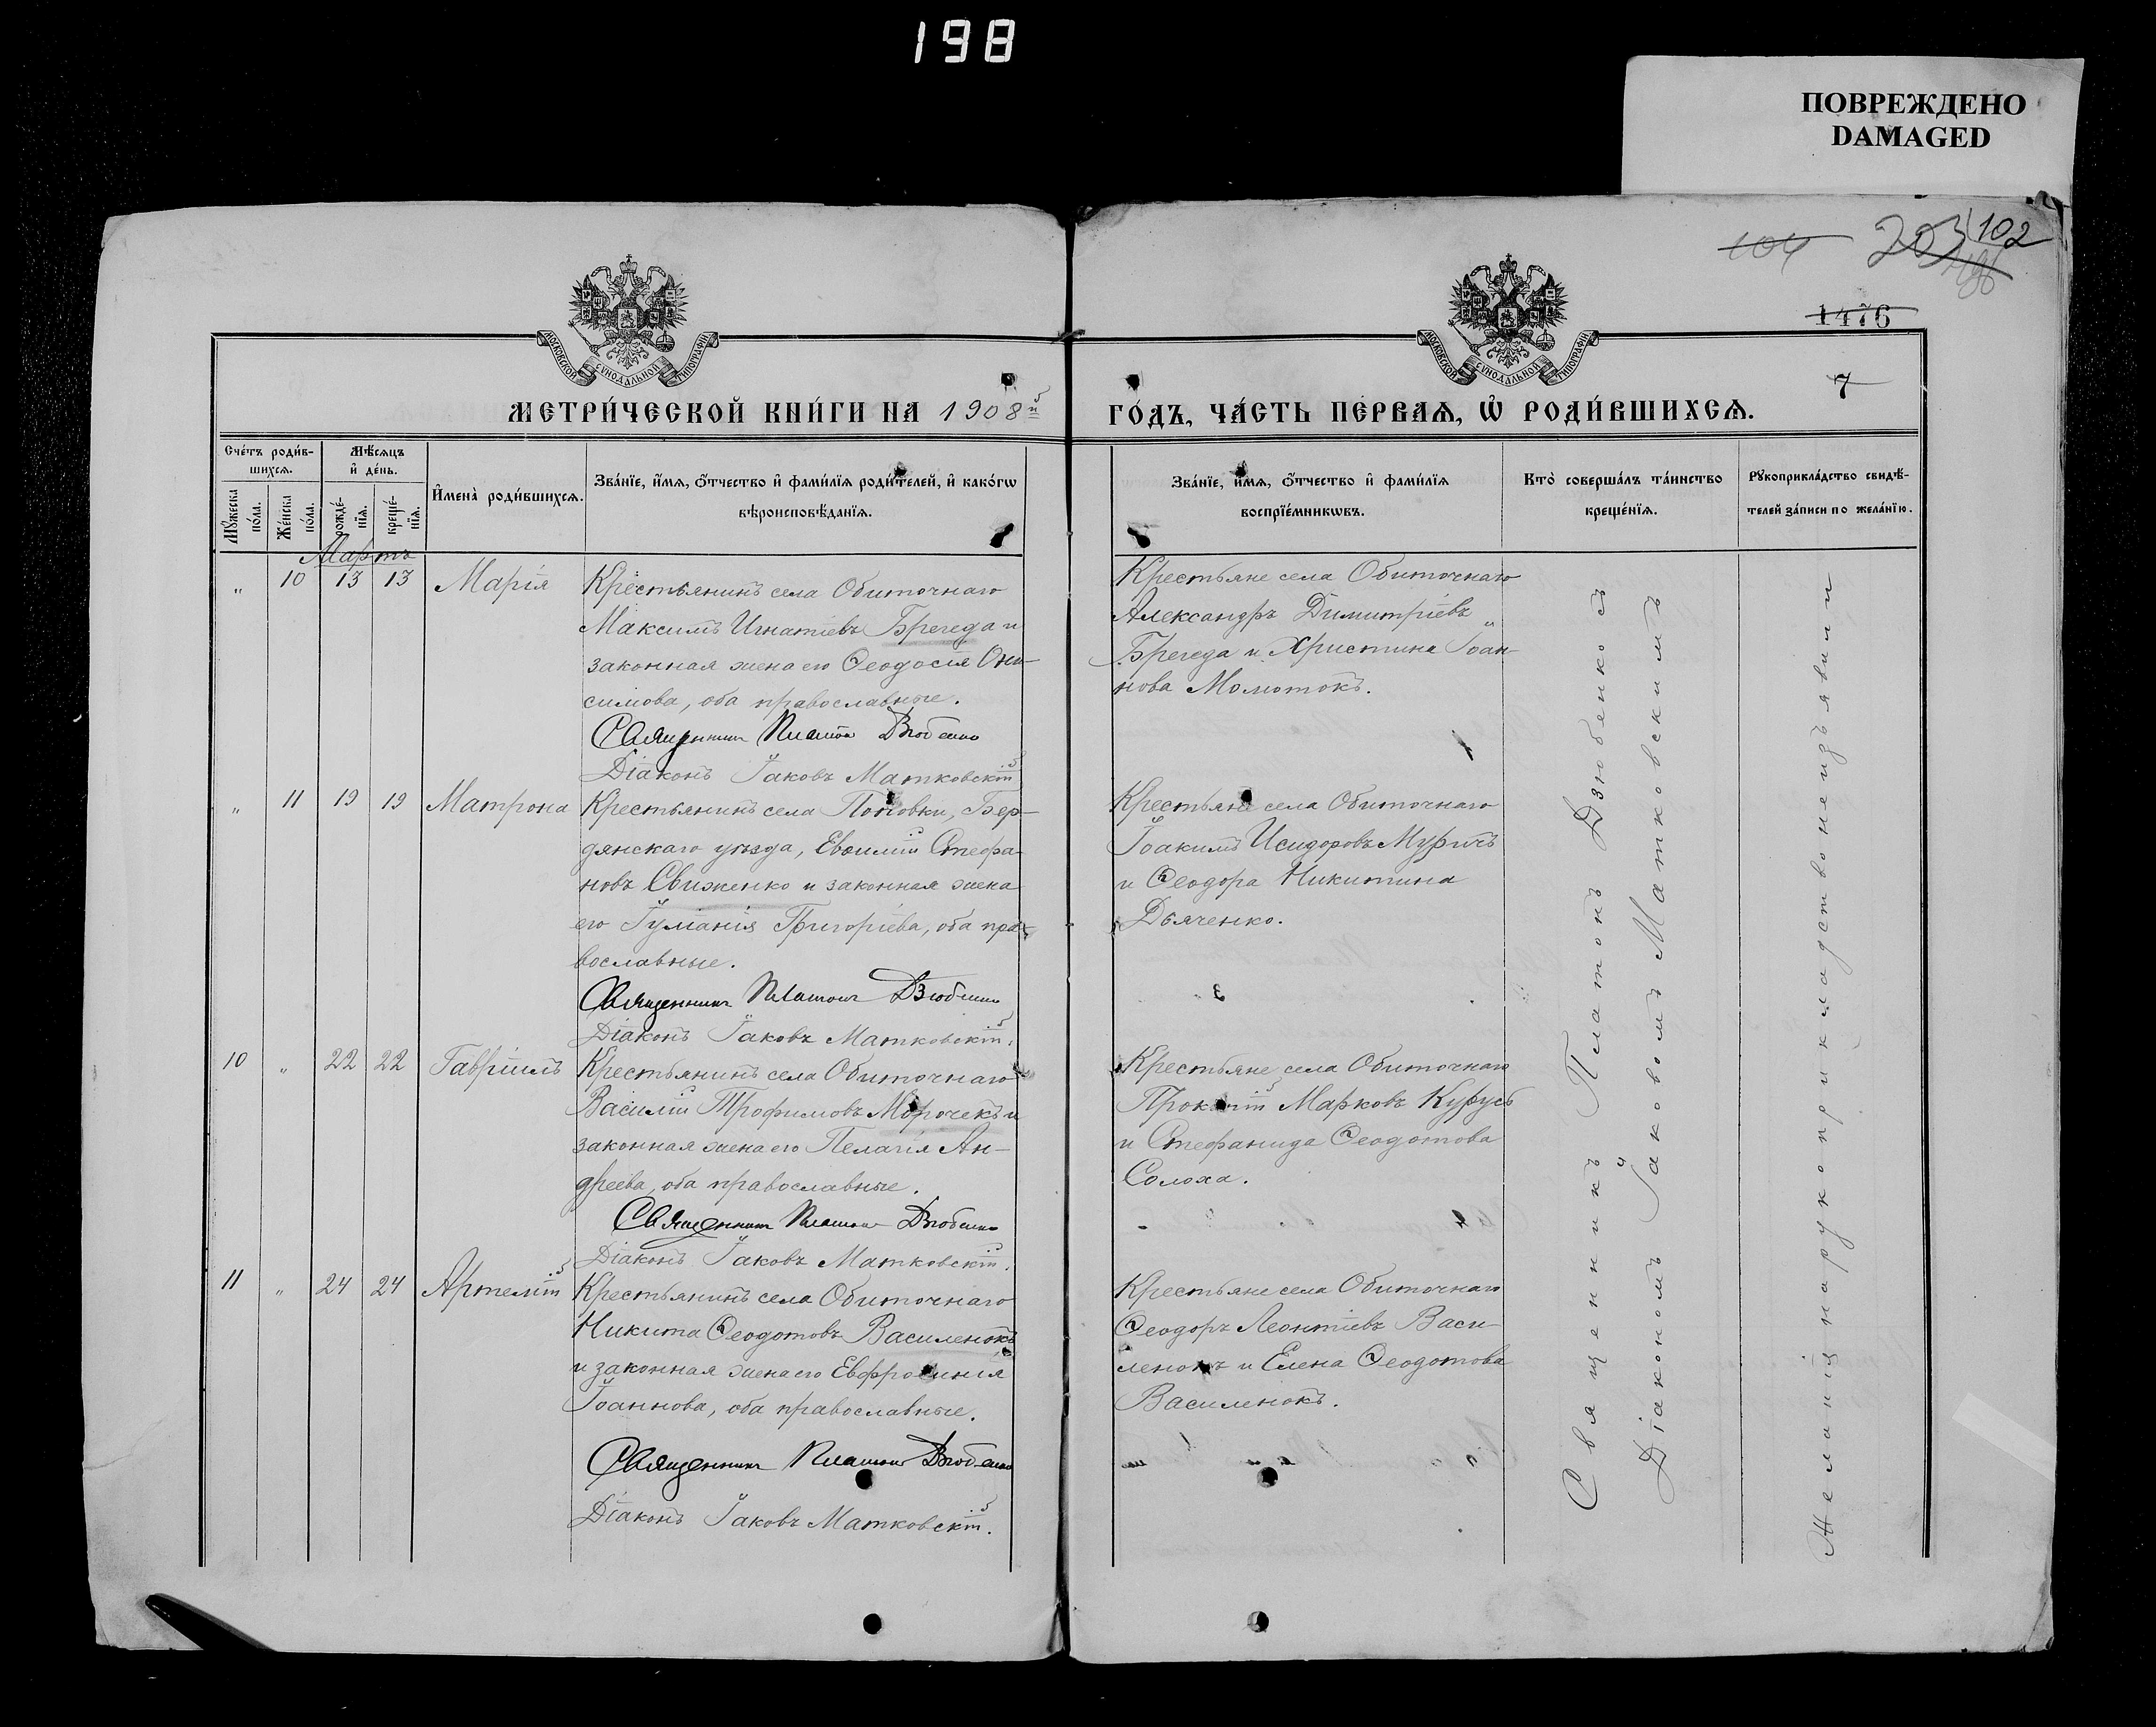 198
ПОВРЕЖДЕНО
DAMAGED
104 203 102
1476
7
МОСКОВСКОЙ СѴНОДАЛЬНОЙ ТИПОГРАФІИ
МОСКОВСКОЙ СѴНОДАЛЬНОЙ ТИПОГРАФІИ
МЕТРИ́ЧЕСКОЙ КНИ́ГИ НА 1908й
ГО́ДЪ, ЧА́СТЬ ПЕ́РВАѦ, Ѡ РОДИ́ВШИХСѦ.
Сче́тъ роди́в-
шихсѧ.
Мѣ́сѧцъ
и де́нь.
Мꙋ́жеска по́ла.
Же́нска по́ла.
рожде́-нїѧ.
креще́-нїѧ.
Имена̀ роди́вшихсѧ.
Зва́нїе, и́мѧ, ѻ́тчество и фами́лїѧ роди́телей, и како́гѡ
вѣроисповѣ́данїѧ.
Зва́нїе, и́мѧ, ѻ́тчество и фами́лїѧ
воспрїе́мникѡвъ.
Кто̀ соверша́лъ та́инство
креще́нїѧ.
Рꙋкоприкла́дство свидѣ́-
телей за́писи по жела́нїю.
Мартъ
„ 10 13 13 Марія
Крестьянинъ села Обиточнаго
Максимъ Игнатіевъ Брегеда и
законная жена его Ѳеодосія Они-
симова, оба православные.
Священникъ Платонъ Дзюбенко
Діаконъ Іаковъ Матковскій
Крестьяне села Обиточнаго
Александръ Димитріевъ
Брегеда и Христина Іоан-
нова Момотокъ.
„ 11 19 19 Матрона
Крестьянинъ села Поповки, Бер-
дянскаго уѣзда, Евѳимій Стефа-
новъ Свиженко и законная жена
его Іуліанія Григоріева, оба пра-
вославные.
Священникъ Платонъ Дзюбенко
Діаконъ Іаковъ Матковскій.
Крестьяне села Обиточнаго
Іоакимъ Исидоровъ Муричъ
и Ѳеодора Никитина
Дьяченко.
10 „ 22 22 Гавріилъ
Крестьянинъ села Обиточнаго
Василій Трофимовъ Морочекъ и
законная жена его Пелагія Ан-
дреева, оба православные.
Священникъ Платонъ Дзюбенко
Діаконъ Іаковъ Матковскій.
Крестьяне села Обиточнаго
Прокопій Марковъ Курусь
и Стефанида Ѳеодотова
Солоха.
11 „ 24 24 Артемій
Крестьянинъ села Обиточнаго
Никита Ѳеодотовъ Василенокъ
и законная жена его Евфросинія
Іоаннова, оба православные.
Священникъ Платонъ Дзюбенко
Діаконъ Іаковъ Матковскій.
Крестьяне села Обиточнаго
Ѳеодоръ Леонтіевъ Васи-
ленокъ и Елена Ѳеодотова
Василенокъ.
Священникъ Платонъ Дзюбенко съ
Діакономъ Іаковомъ Матковскимъ
Желанія на рукоприкладство не изъявили